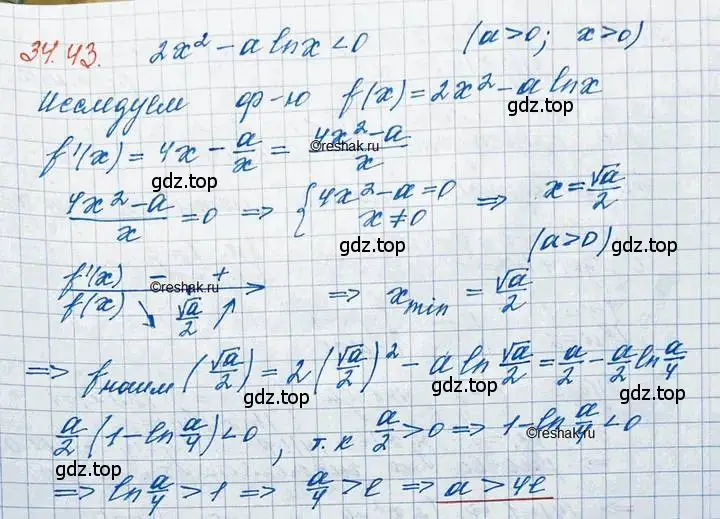 34.43. 2x² - a ln x < 0 (a > 0; x > 0)
Исследуем ф-ю f(x) = 2x² - a ln x
gdz.top
f'(x) = 4x - a/x = (4x² - a)/x
©reshak.ru
gdz.top
(4x² - a)/x = 0 => { 4x² - a = 0; x ≠ 0 => x = √a/2
gdz.top gdz.top
(a > 0)
f'(x) - +
©reshak.ru
f(x) ↘ √a/2 ↗ => x min = √a/2
=> f наим (√a/2) = 2(√a/2)² - a ln √a/2 = a/2 - a/2 ln a/4
gdz.top gdz.top
a/2 (1 - ln a/4) < 0, т.к a/2 > 0 => 1 - ln a/4 < 0
©reshak.ru
gdz.top
=> ln a/4 > 1 => a/4 > e => a > 4e
gdz.top gdz.top